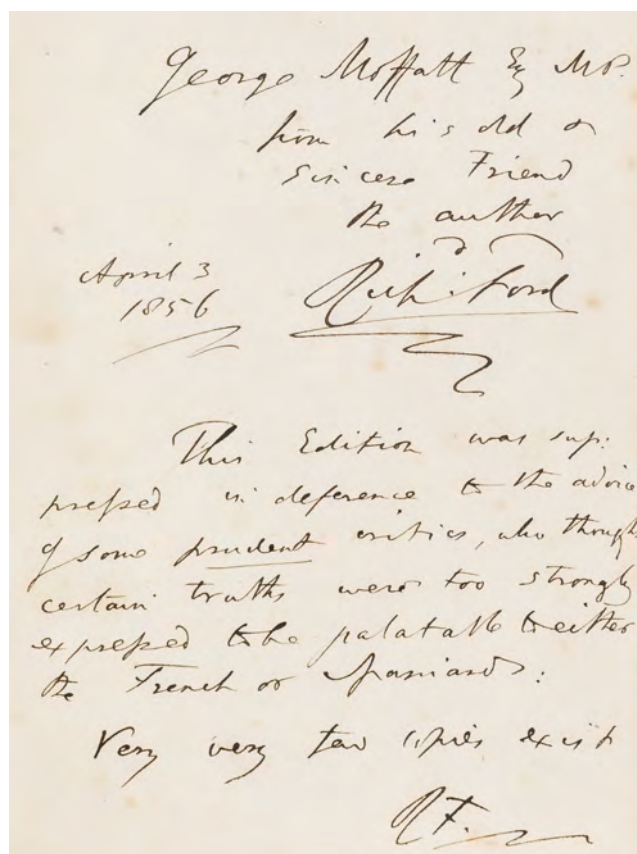 George Moffatt Esq MP.
from his old &
sincere Friend
the author
April 3
1856
Rich: Ford
This Edition was sup:
pressed in deference to the advice
of some prudent critics, who thought
certain truths were too strongly
expressed to be palatable to either
the French or Spaniards:
Very very few copies exist
RF.